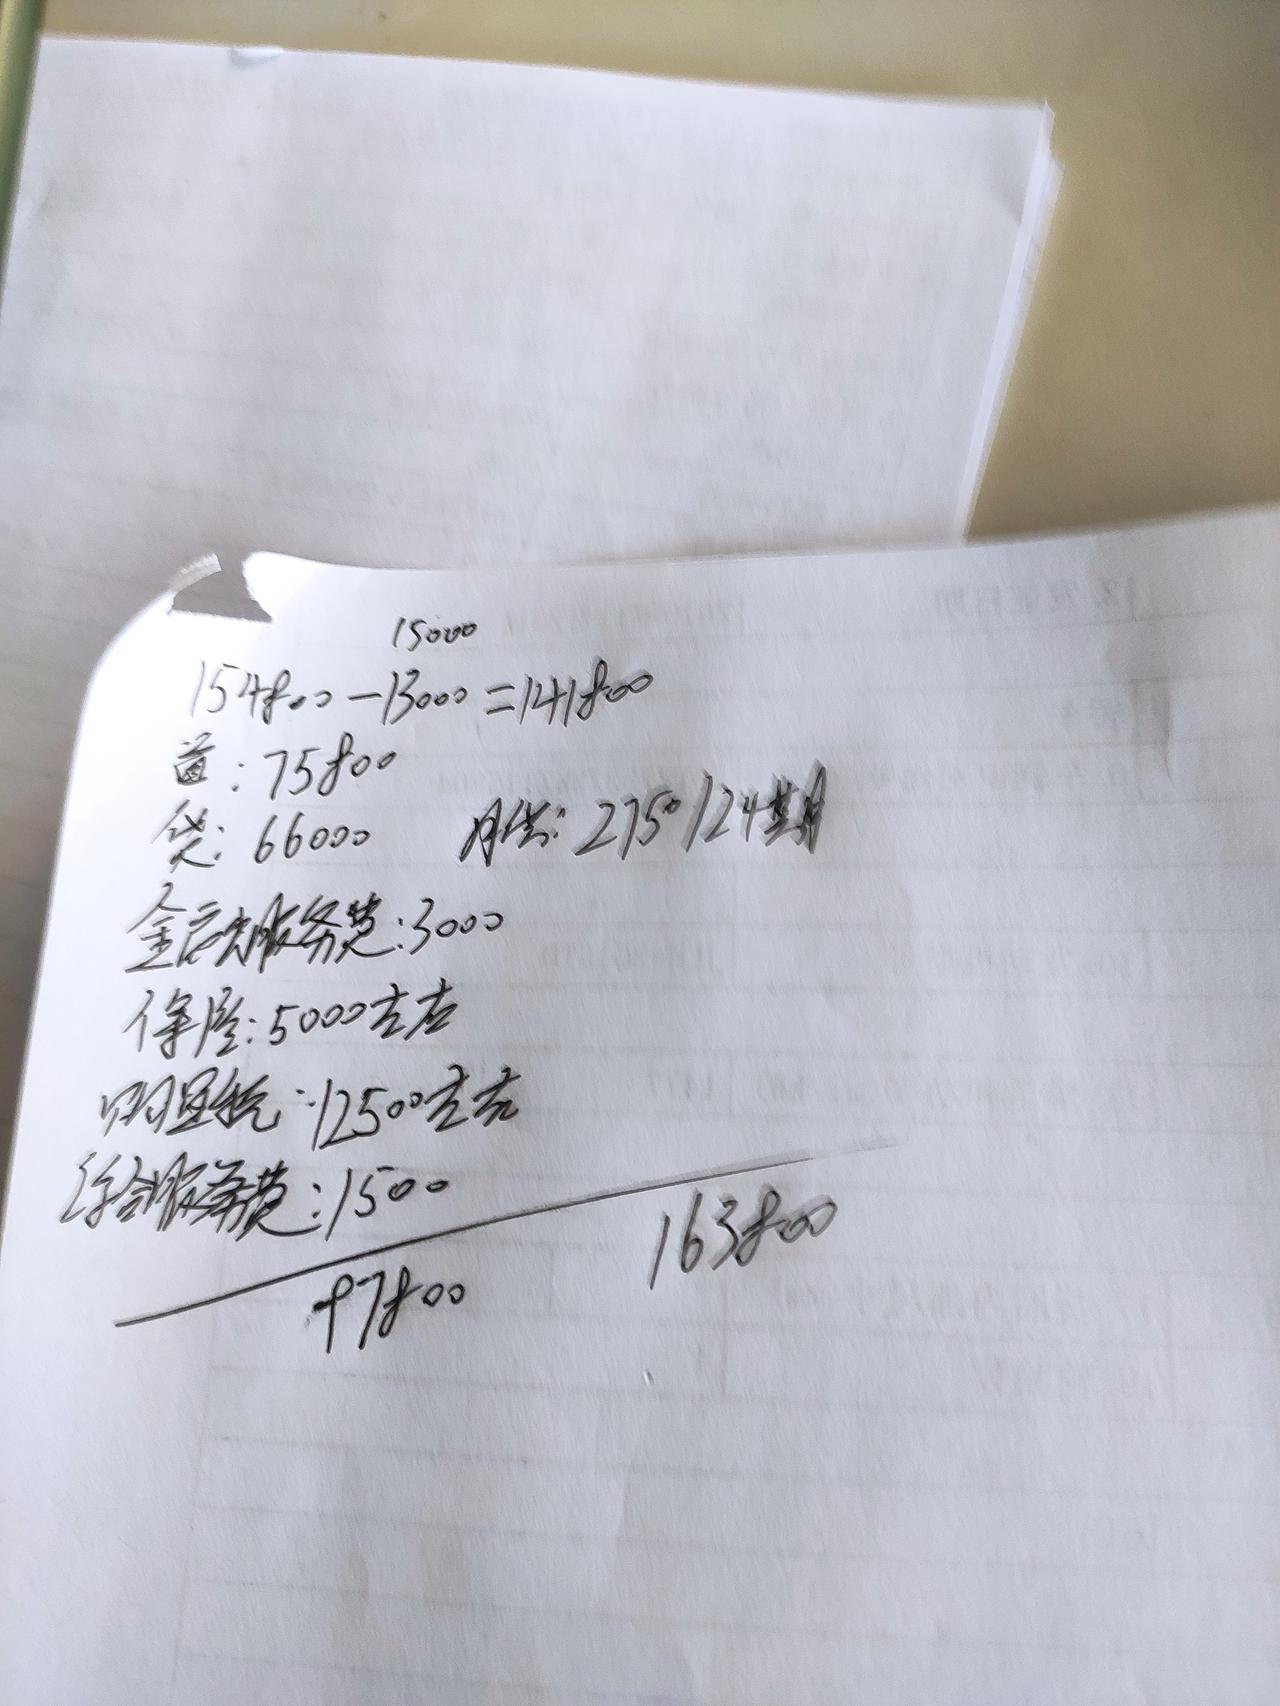 15000
154800-13000=141800
首:75800
贷:66000 月供:2750/24期
金融服务费:3000
保险:5000左右
购置税:12500左右
综合服务费:1500
97800
163800